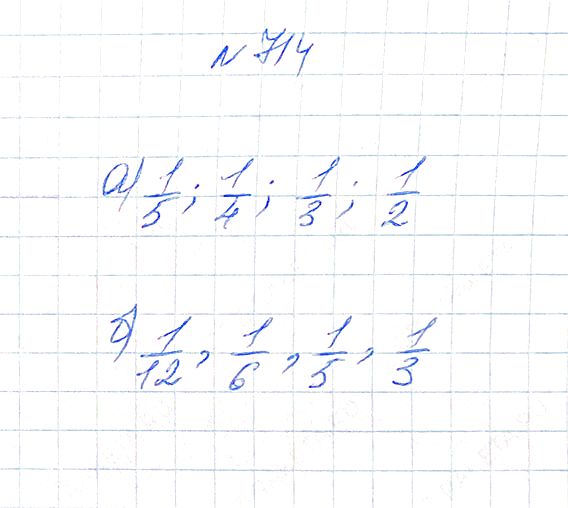 № 714
а) 1/5; 1/4; 1/3; 1/2
б) 1/12, 1/6, 1/5, 1/3